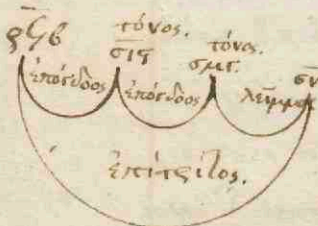 ρϟβ τόνος. τόνος.
σιϛ σμγ. σν
ἐπόγδοος ἐπόγδοος λεῖμμα
ἐπίτριτος.